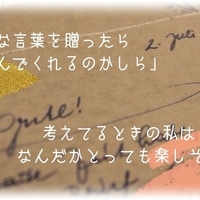 な言葉を贈ったら
2. Juli
んでくれるのかしら」
Grüße!
考えてるときの私は
なんだかとっても楽しそ